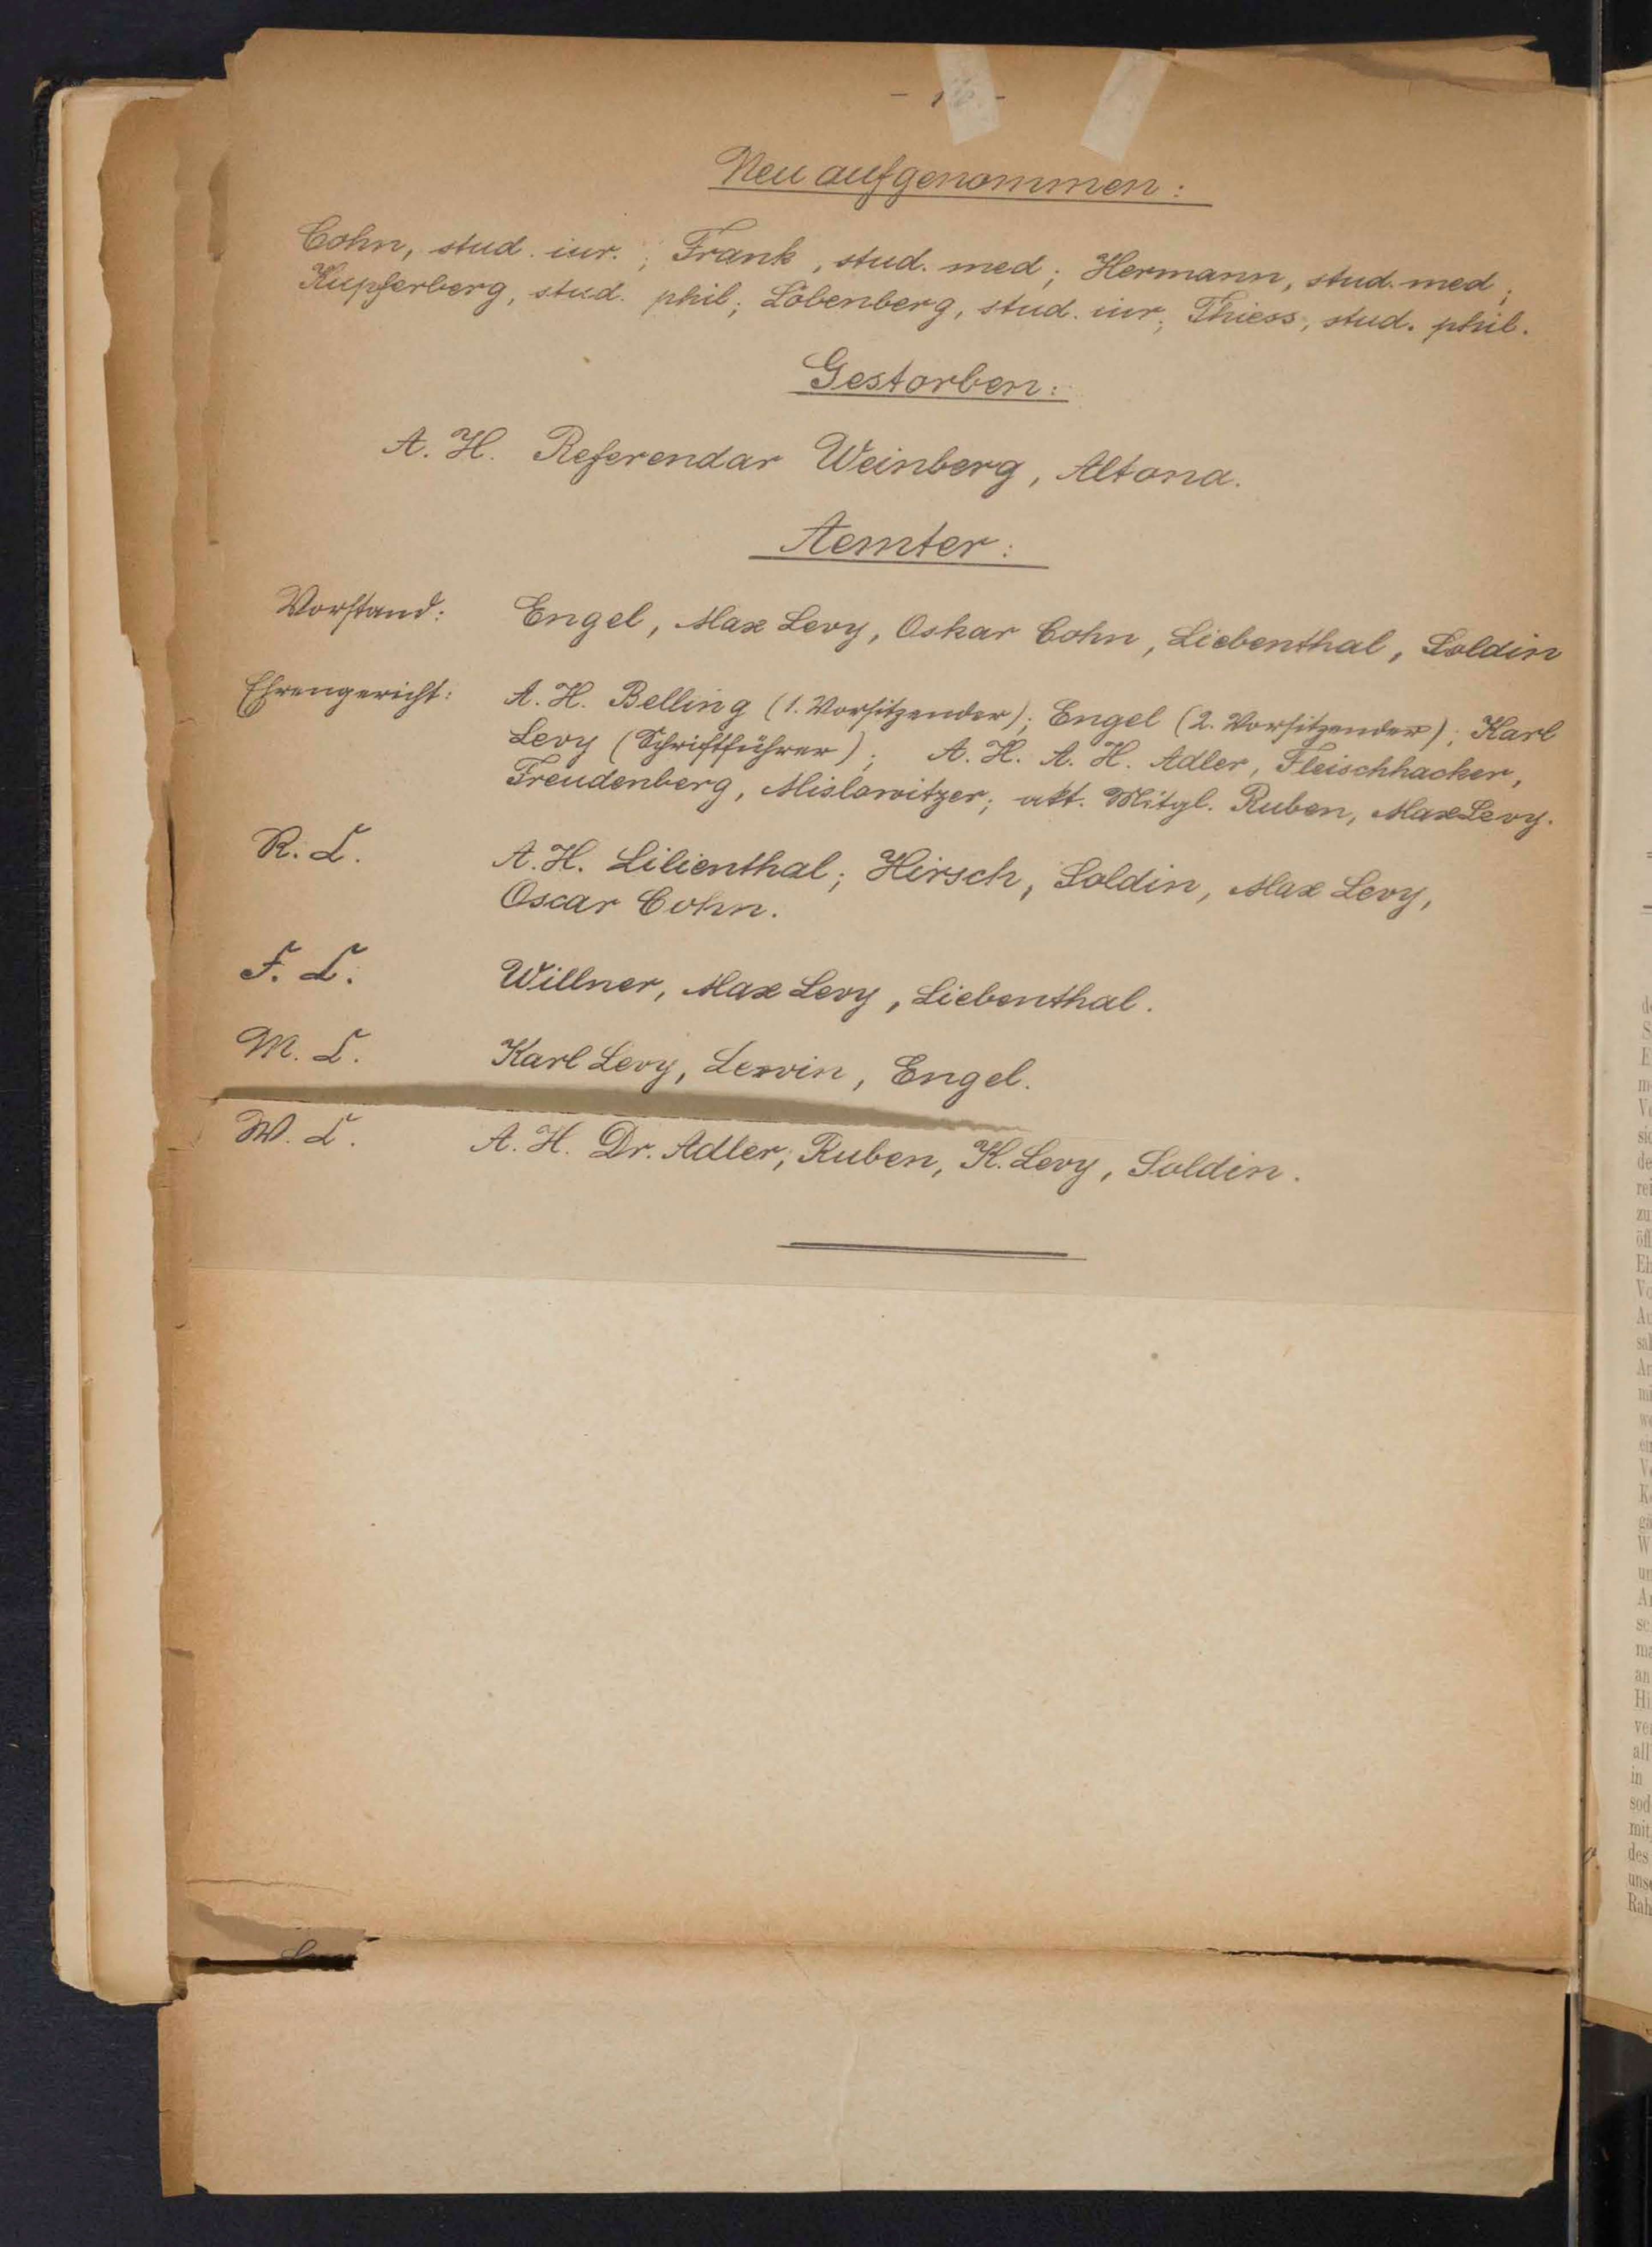 - 16. -
Neu aufgenommen:
Cohn, stud. iur.; Frank, stud. med; Hermann, stud. med;
Kupferberg, stud. phil; Löbenberg, stud. iur; Thiess, stud. phil.
Gestorben:
A. H. Referendar Weinberg, Altona.
Aemter:
Vorstand: Engel, Max Levy, Oskar Cohn, Liebenthal, Soldin
Ehrengericht: A. H. Belling (1. Vorsitzender); Engel (2. Vorsitzender); Karl
Levy (Schriftführer); A. H. A. H. Adler, Fleischhacker,
Freudenberg, Mislowitzer; akt. Mitgl. Ruben, Max Levy.
R. C. A. H. Lilienthal; Hirsch, Soldin, Max Levy,
Oscar Cohn.
F. C. Willner, Max Levy, Liebenthal.
M. C. Karl Levy, Lewin, Engel.
W. C. A. H. Dr. Adler; Ruben, K. Levy, Soldin.